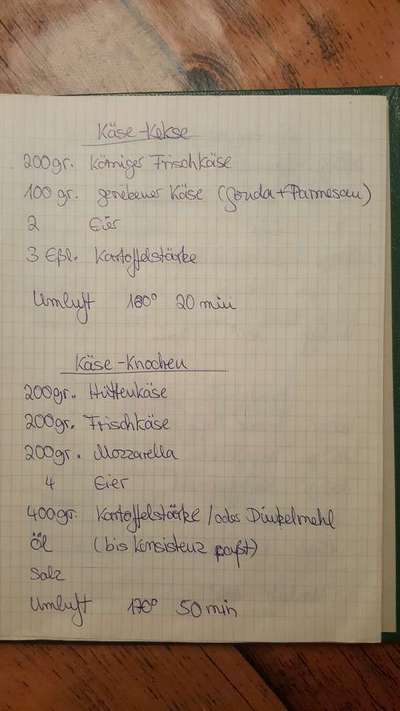 Käse-Kekse
200gr. körniger Frischkäse
100 gr. geriebener Käse (Gouda + Parmesan)
2 Eier
3 Eßl. Kartoffelstärke
Umluft 180° 20 min
Käse-Knochen
200gr. Hüttenkäse
200gr. Frischkäse
200gr. Mozzarella
4 Eier
400gr. Kartoffelstärke / oder Dinkelmehl
Öl (bis Konsistenz paßt)
Salz
Umluft 170° 50 min